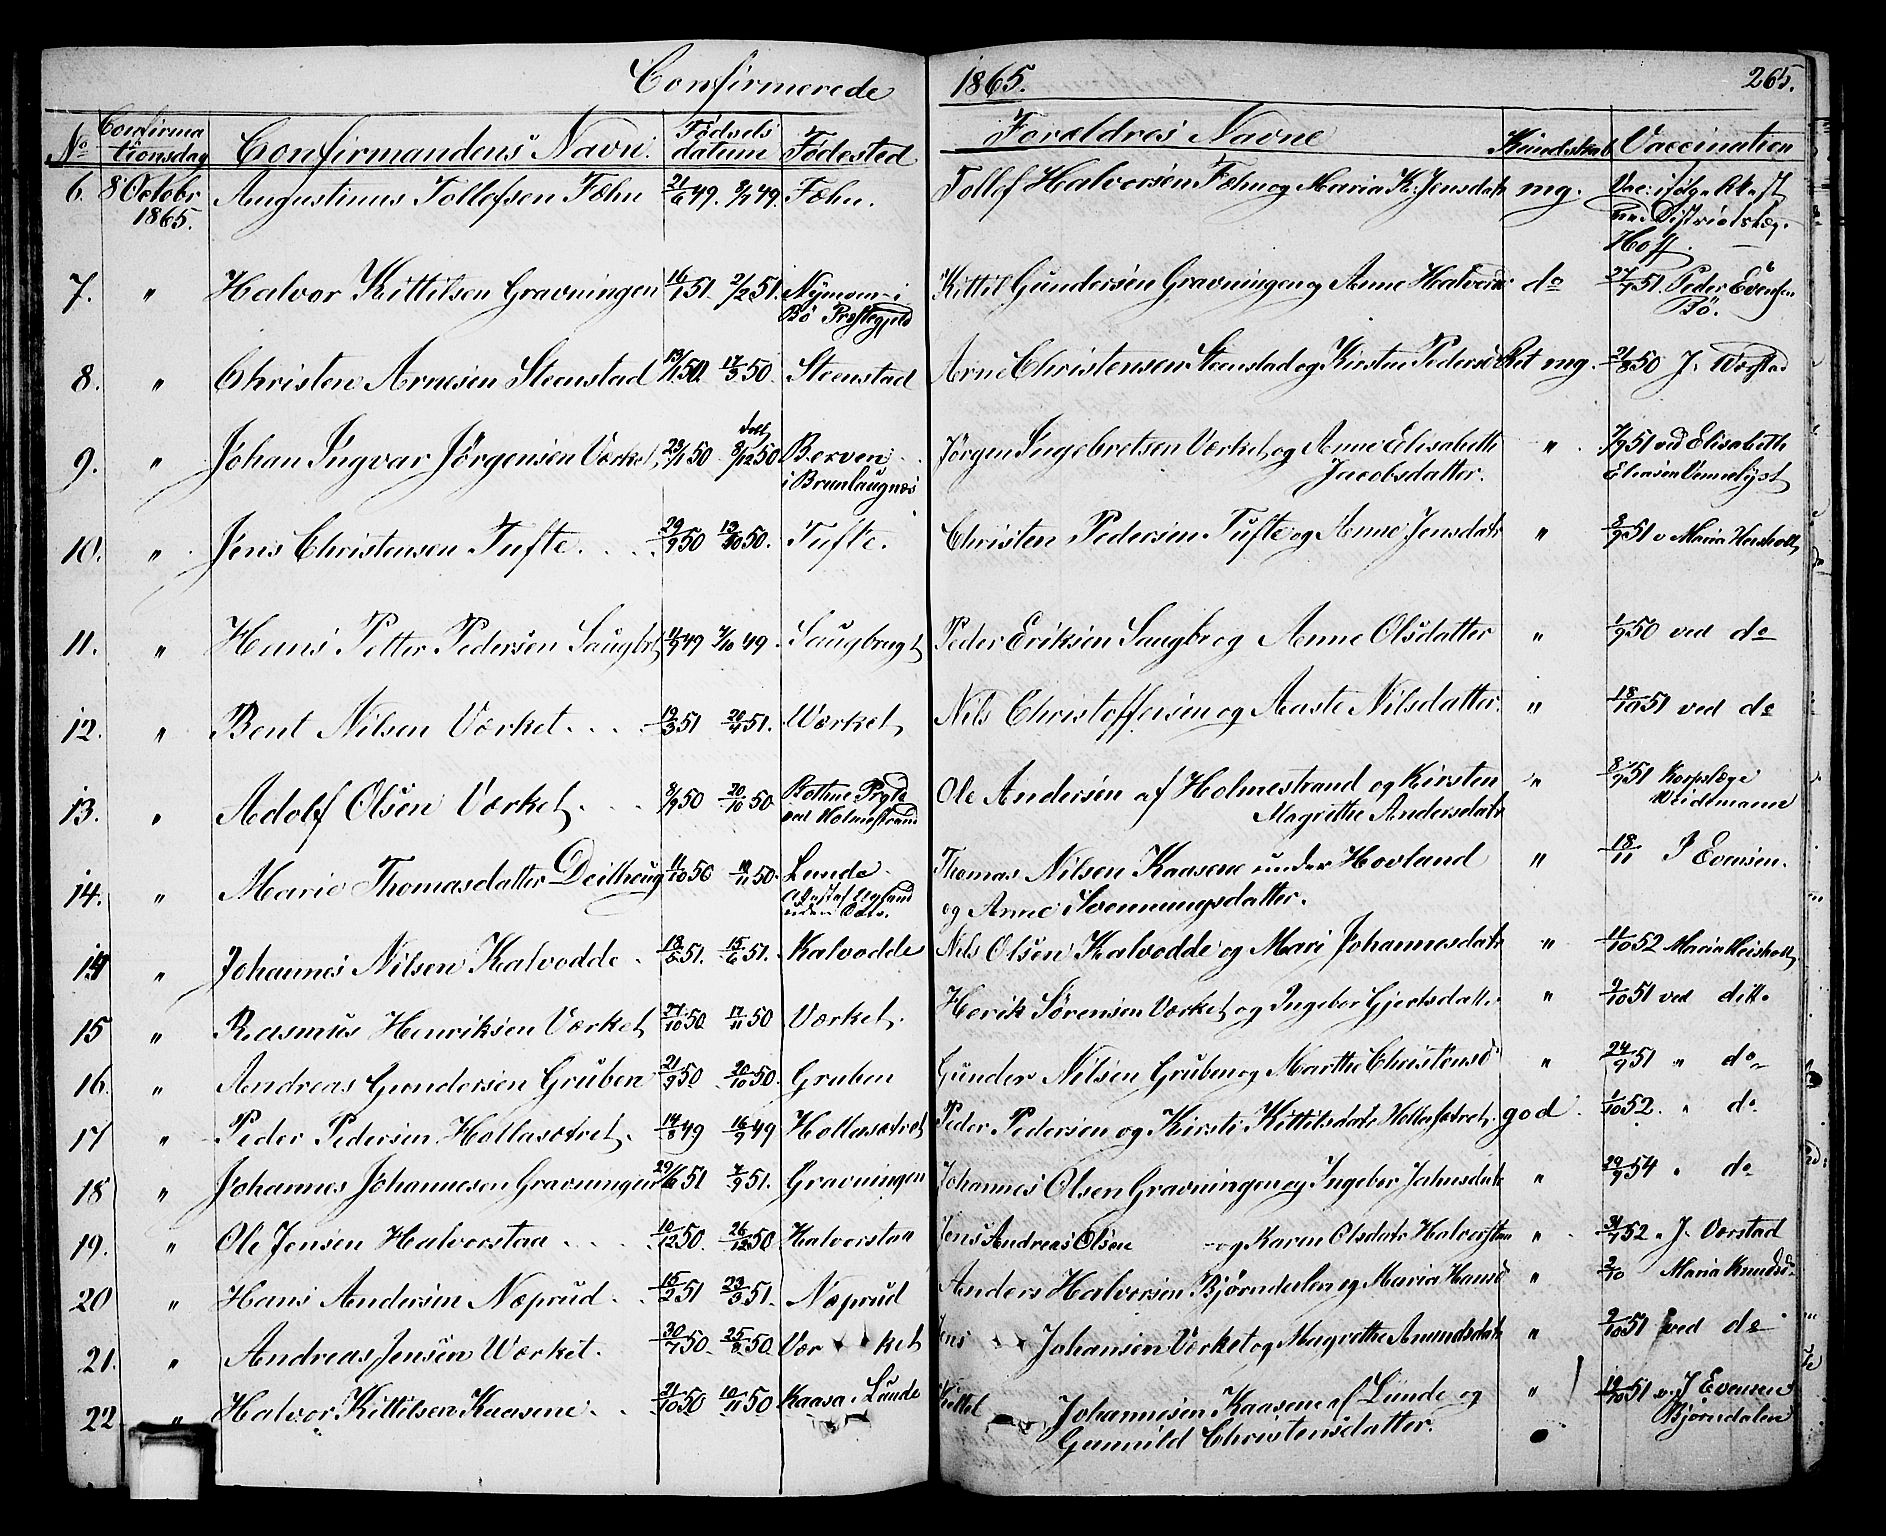 Confirmerede 1865. 265.
No Confirmationsdag Confirmandens Navn. Fødsels datum Fødested Forældres Navne Kundskab Vaccination
6. 8 Octobr 1865. Augustinus Tollefsen Fæhn 21/6 49. 8/7 49. Fæhn. Tollef Halvorsen Fæhn og Maria K: Jensdatr mg. Vac: ifølge
Districtslæg.
Hoff.
7. " Halvor Kittilsen Gravningen 16/1 51. 2/2 51. Nymoen i Kittil Gundersen Gravningen og Anne Halvorsd do 27/7 51. Peder Evensen
Bø Præstegjeld Bø.
8. " Christen Arnesen Steenstad 13/1 50. 17/3 50. Steenstad Arne Christensen Steenstad og Kirsten Pedersd Ret mg. 21/8 50 J. Wærstad
9. " Johan Ingvar Jørgensen Værket 23/1 50 døbt 8/12 50 Berven Jørgen Ingebretsen Værket og Anne Elisabeth " 7/9 51 ved Elisabeth
i Brunlaugnæs Jacobsdatter. Eliasen Vennelyst
10. " Jens Christensen Tufte. 29/9 50 13/10 50. Tufte. Christen Pedersen Tufte og Anne Jensdatr " 8/9 51 v Maria Hersholt
11. " Hans Petter Pedersen Saugbrt 11/9 49 7/10 49. Saugbrugt Peder Eriksen Saugbr og Anne Olsdatter " 1/9 50 ved do
12. " Bent Nilsen Værket. 19/3 51 20/4 51. Wærket Nils Christoffersen og Aaste Nilsdatter. " 18/10 51 ved do
13. " Adolf Olsen Værket. 8/9 50 20/10 50. Bothne Prgld Ole Andersen af Holmestrand og Kirsten " 8/9 51 Korpslæge
ved Holmestrand Magrethe Andersdatr Weidemann
14. " Marie Thomasdatter Deilhoug 11/10 50 10/11 50. Lunde Thomas Nilsen Kaasene under Hovland " 18/11 J Evensen.
og Anne Svennungsdatter.
14 " Johannes Nilsen Kalvodde. 13/5 51. 15/6 51. Kalvodde Nils Olsen Kalvodde og Mari Johannesdatr " 11/10 52 Maria Heisholt
15 " Rasmus Henriksen Værket 27/10 50 17/11 50 Værket. Henrik Sørensen Værket og Ingebor Gjertsdatter " 9/10 51 ved ditto
16. " Andreas Gundersen Gruben 21/9 50 20/10 50. Gruben Gunder Nilsen Gruben og Marthe Christensd " 24/9 51 " do
17 " Peder Pedersen Hollasætret. 14/8 49 16/9 49 Hollasætret Peder Pedersen og Kirsti Kittilsdatr Hollasætret. god 1/10 52. " do
18 " Johannes Johannesen Gravningen 29/6 51 7/9 51. Gravningen Johannes Olsen Gravningen og Ingebor Jahnsdatr " 29/9 54 " do
19. " Ole Jensen Halvorstaa 10/12 50. 26/12 50 Halvorstaa Jens Andreas Olsen og Karen Olsdatr Halvorstaa " 31/7 52 " J. Værstad
20 " Hans Andersen Næprud. 15/2 51 23/3 51. Næprud Anders Halvorsen Bjørndalen og Maria Hansd " 2/10 Maria Knudsd
21. " Andreas Jensen Værket. 30/7 50. 25/8 50. Værket Jens Johansen Værket og Magrethe Amundsdatr " 9/10 51 ved do
22 " Halvor Kittilsen Kaasene. 21/10 50 10/11 50 Kaasa i Lunde Kittil Johannesen Kaasene af Lunde og " 19/10 51 v. J Evensen
Gunnild Christensdatter. Bjørndalen